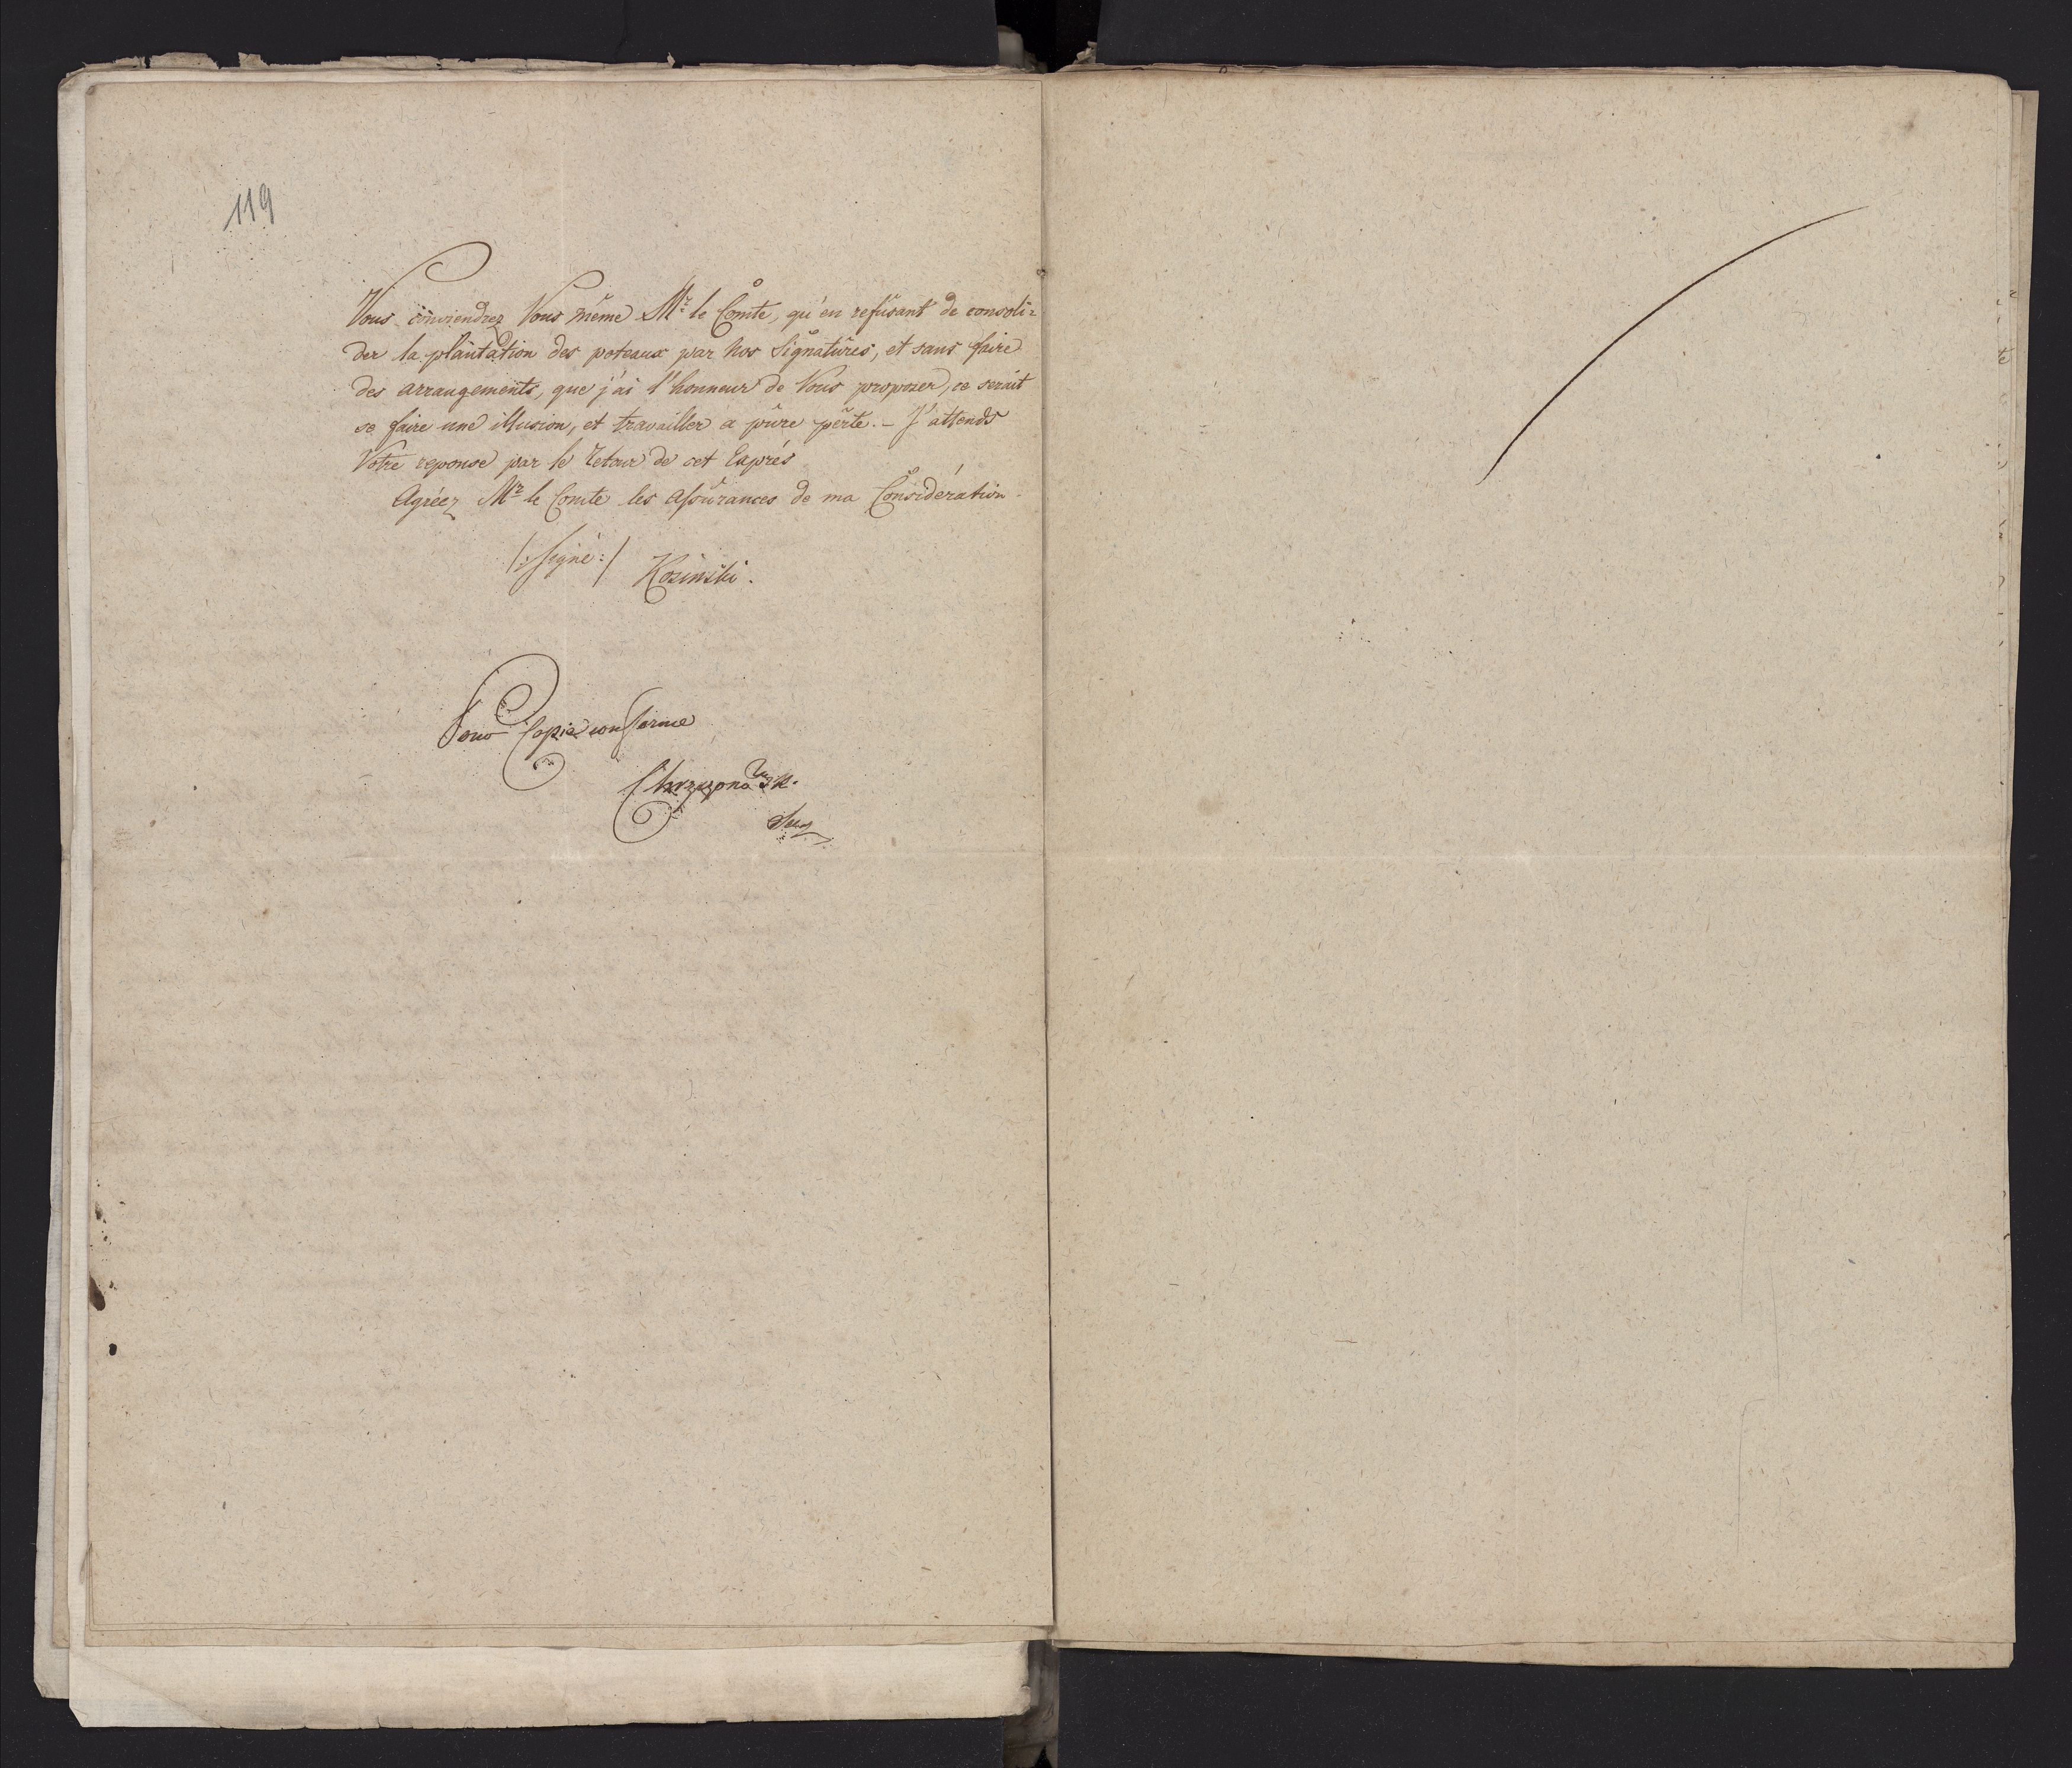 119
Vous conviendrez Vous même Mr le Comte, qu'en refusant de consoli=
der la plantation des poteaux par nos Signatures, et sans faire
des arrangements, que j'ai l'honneur de Vous proposer, ce serait
se faire une illusion, et travailler a pure perte. – J'attends
Votre reponse par le retour de cet Exprés
Agréez Mr le Comte les assurances de ma Considération.
/: Signé :/ Kosinski.
Pour Copie conforme